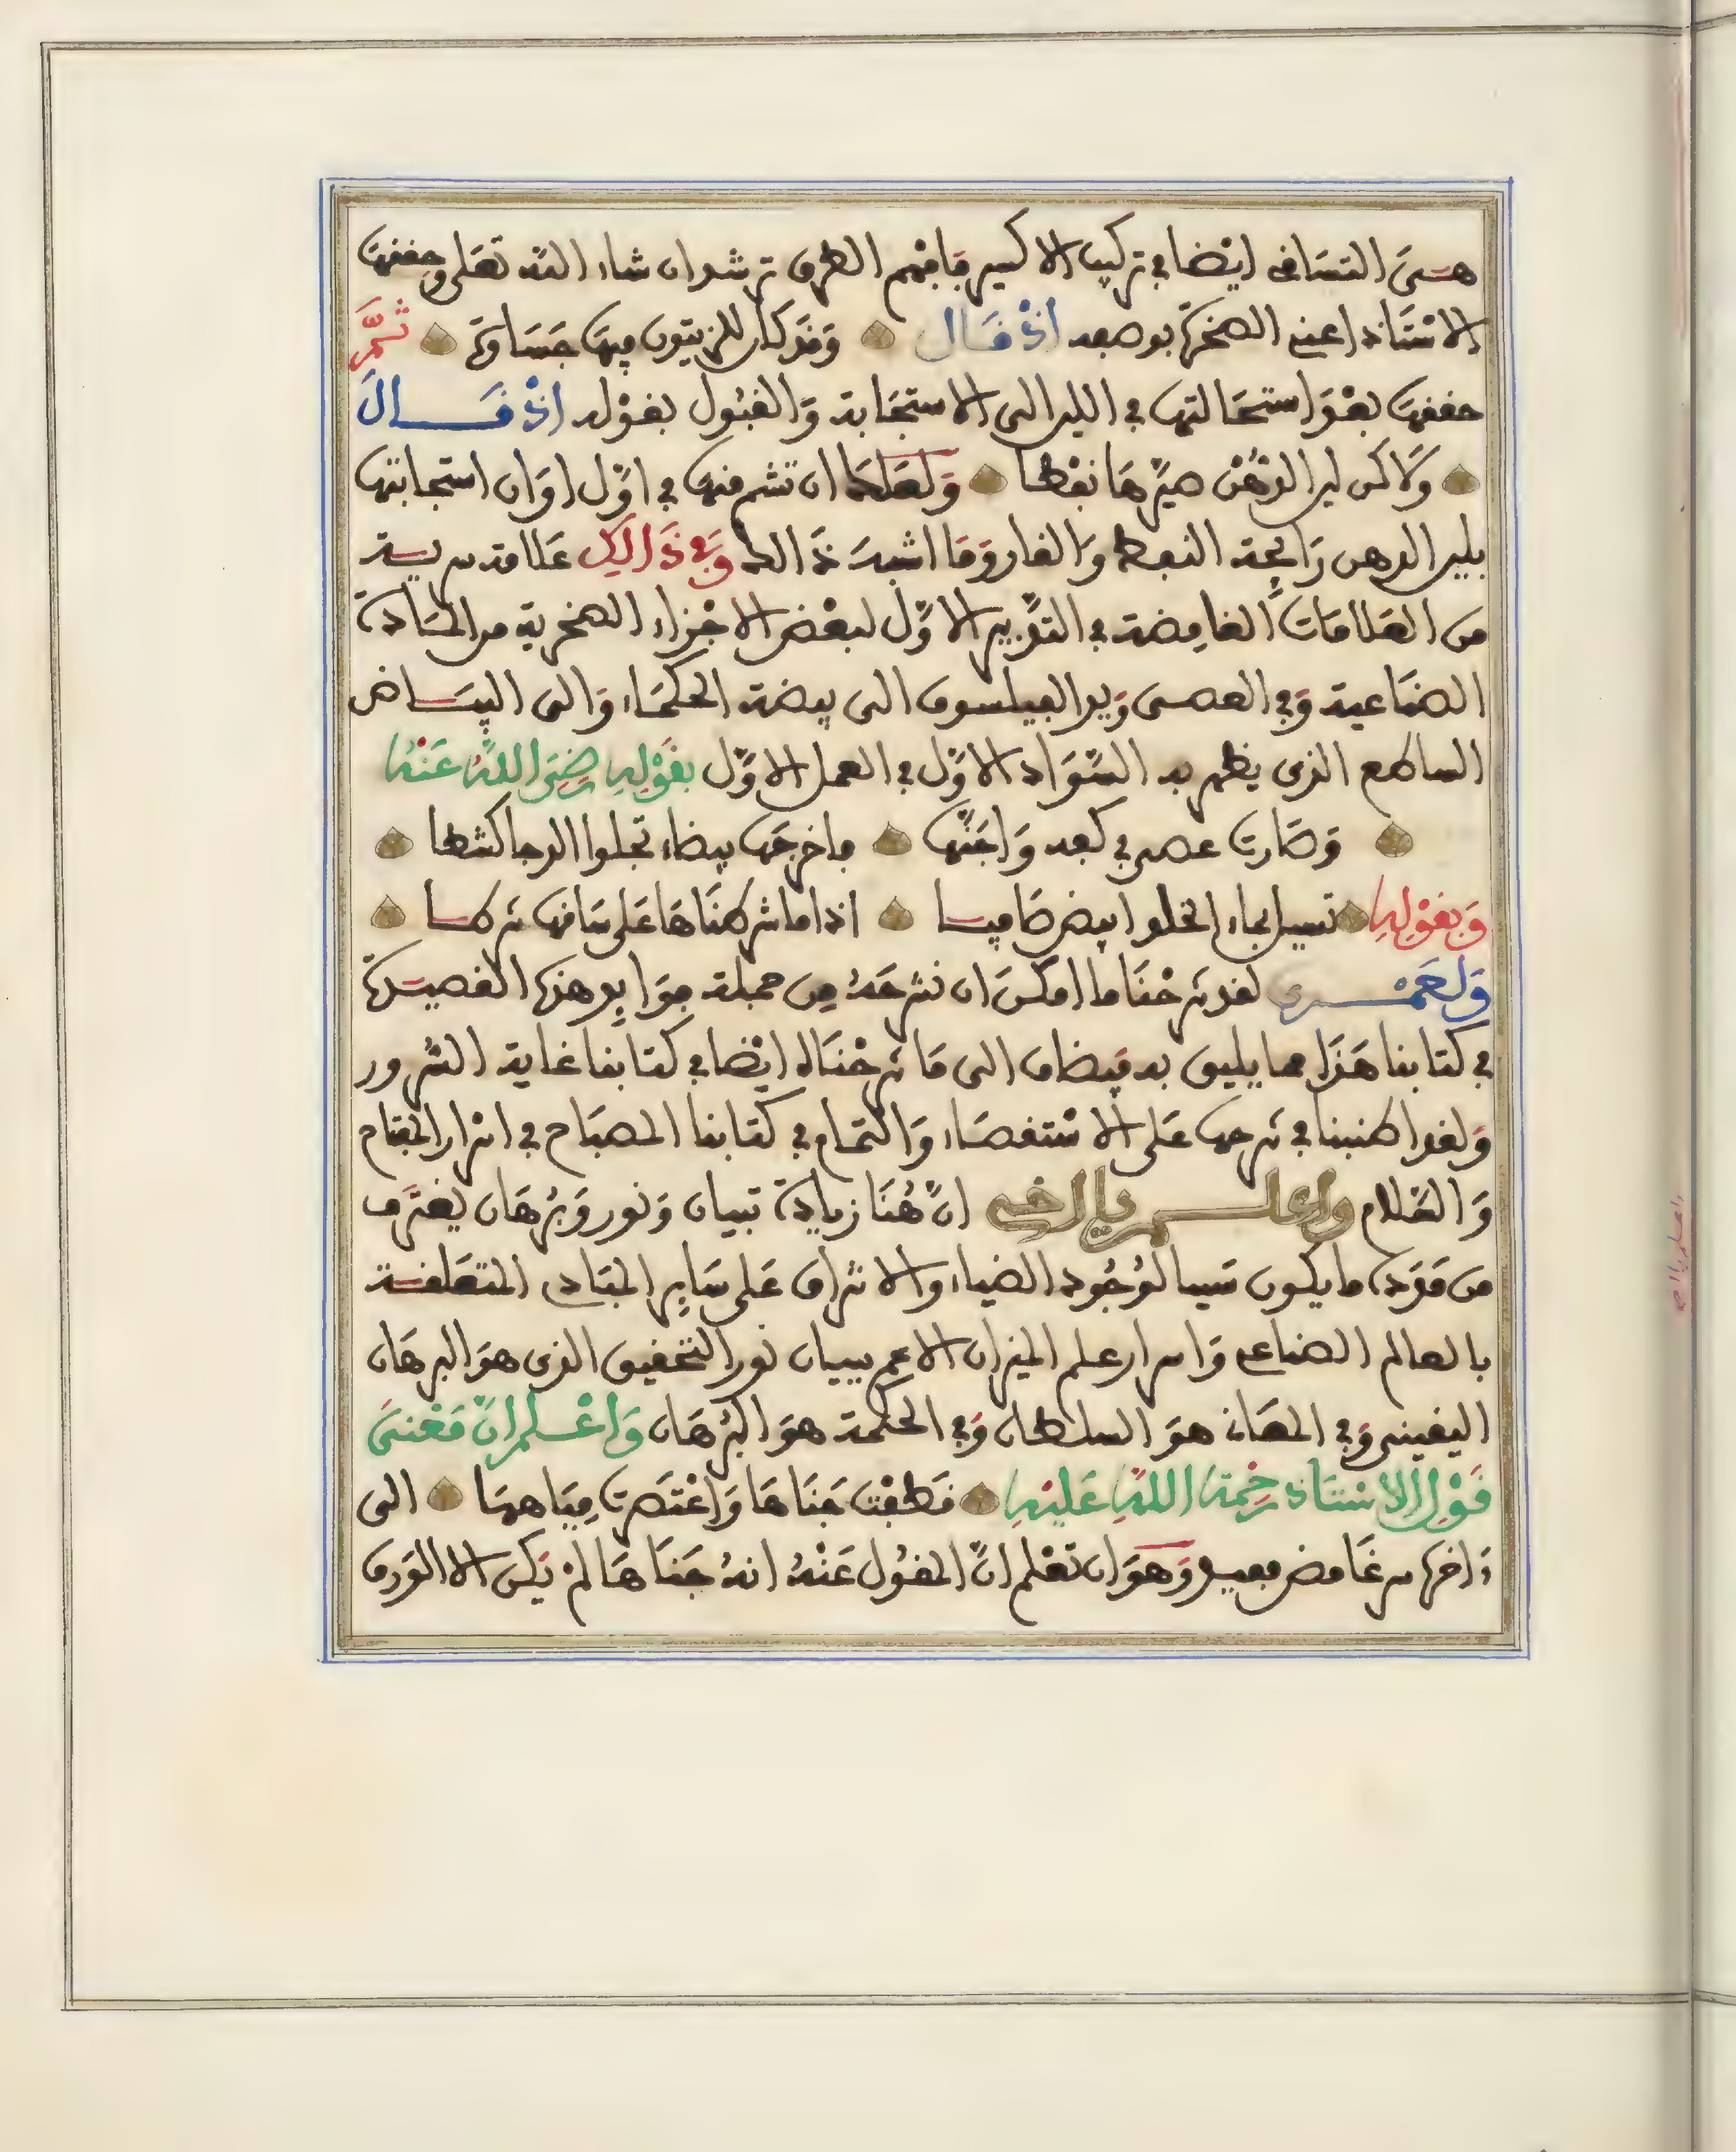 هي التساقي ايضا في تركيب الاكسير فافهم الطرق ترشد ان شاء الله تعلى وحققها
الاستاذ اعني الصخرة بوصفه اذ قال وقد كان للزيتون فيها جساوة ثم
حققها بعد استحالتها في اللين الى الاستجابة والقبول بقوله اذ قال
ولاكن لين الدهن صيرها نفطا ولعلها ان تشم منها في اول اوان استجابتها
بلين الدهن رايحة النفط والقار وما اشبه ذالك وفي ذالك علامة سرية
من العلامات الغامضة في التدبير الاول لبعض الاجزاء الصخرية من المادة
الصناعية وفي العصى ويد الفيلسوف الى بيضة الحكماء والى البياض
الساطع الذي يظهر بعد السواد الاول في العمل الاول بقوله رضي الله عنه
وصارت عصى في كفه واجنها فاخرجها بيضاء تجلوا الدجا كشطا
وبقوله تسيل بماء الخلو ابيض صافيا اذا ما شرطناها على ساقها شرطا
ولعمري لقد شرحنا ما امكن ان نشرحه من جملة فوايد هذه القصيدة
في كتابنا هذا مما يليق به فيضاف الى ما شرحناه ايضا في كتابنا غاية السرور
ولقد اطنبنا في شرحها على الاستقصاء والتمام في كتابنا المصباح في اسرار المفتاح
والسلام واعلم يا اخي ان هنا زيادة تبيان ونور وبرهان يفترق
من مدده ما يكون سببا لوجود الضياء والاشراق على ساير المبادي المتعلقة
بالعالم الصناعي واسرار علم الميزان الاعم ببيان نور التحقيق الذي هو البرهان
اليقيني وفي المعاني هو السلطان وفي الحكمة هو البرهان واعلم ان معنى
قول الاستاذ رحمة الله عليه قطفت جناها واعتصرت مياهها الى
ءاخره سر غامض وهو ان تعلم ان المقول عنه انه جناها لم يكن الا الورق
واعلم يا اخي